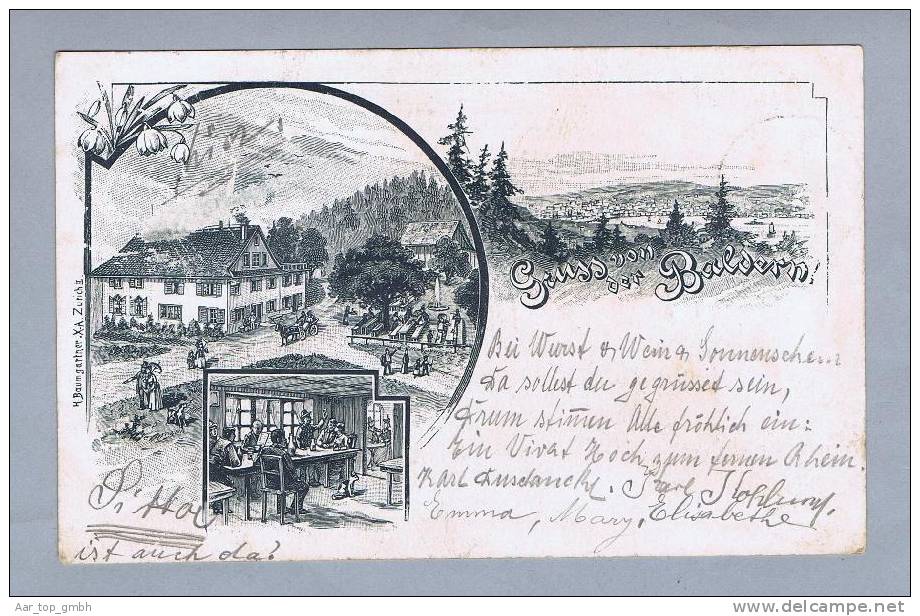 Gruss von
der Baldern!
Bei Wurst & Wein & Sonnenschein
da sollst du gegrüsset sein,
Drum stimen Alle fröhlich ein:
Ein Vivat Hoch zum fernen Rhein.
Karl
Emma, Mary, Elisabethe
ist auch da?
H. Baumgartner. X.A. Zürich II
Aar_top_gmbh
www.delcampe.net